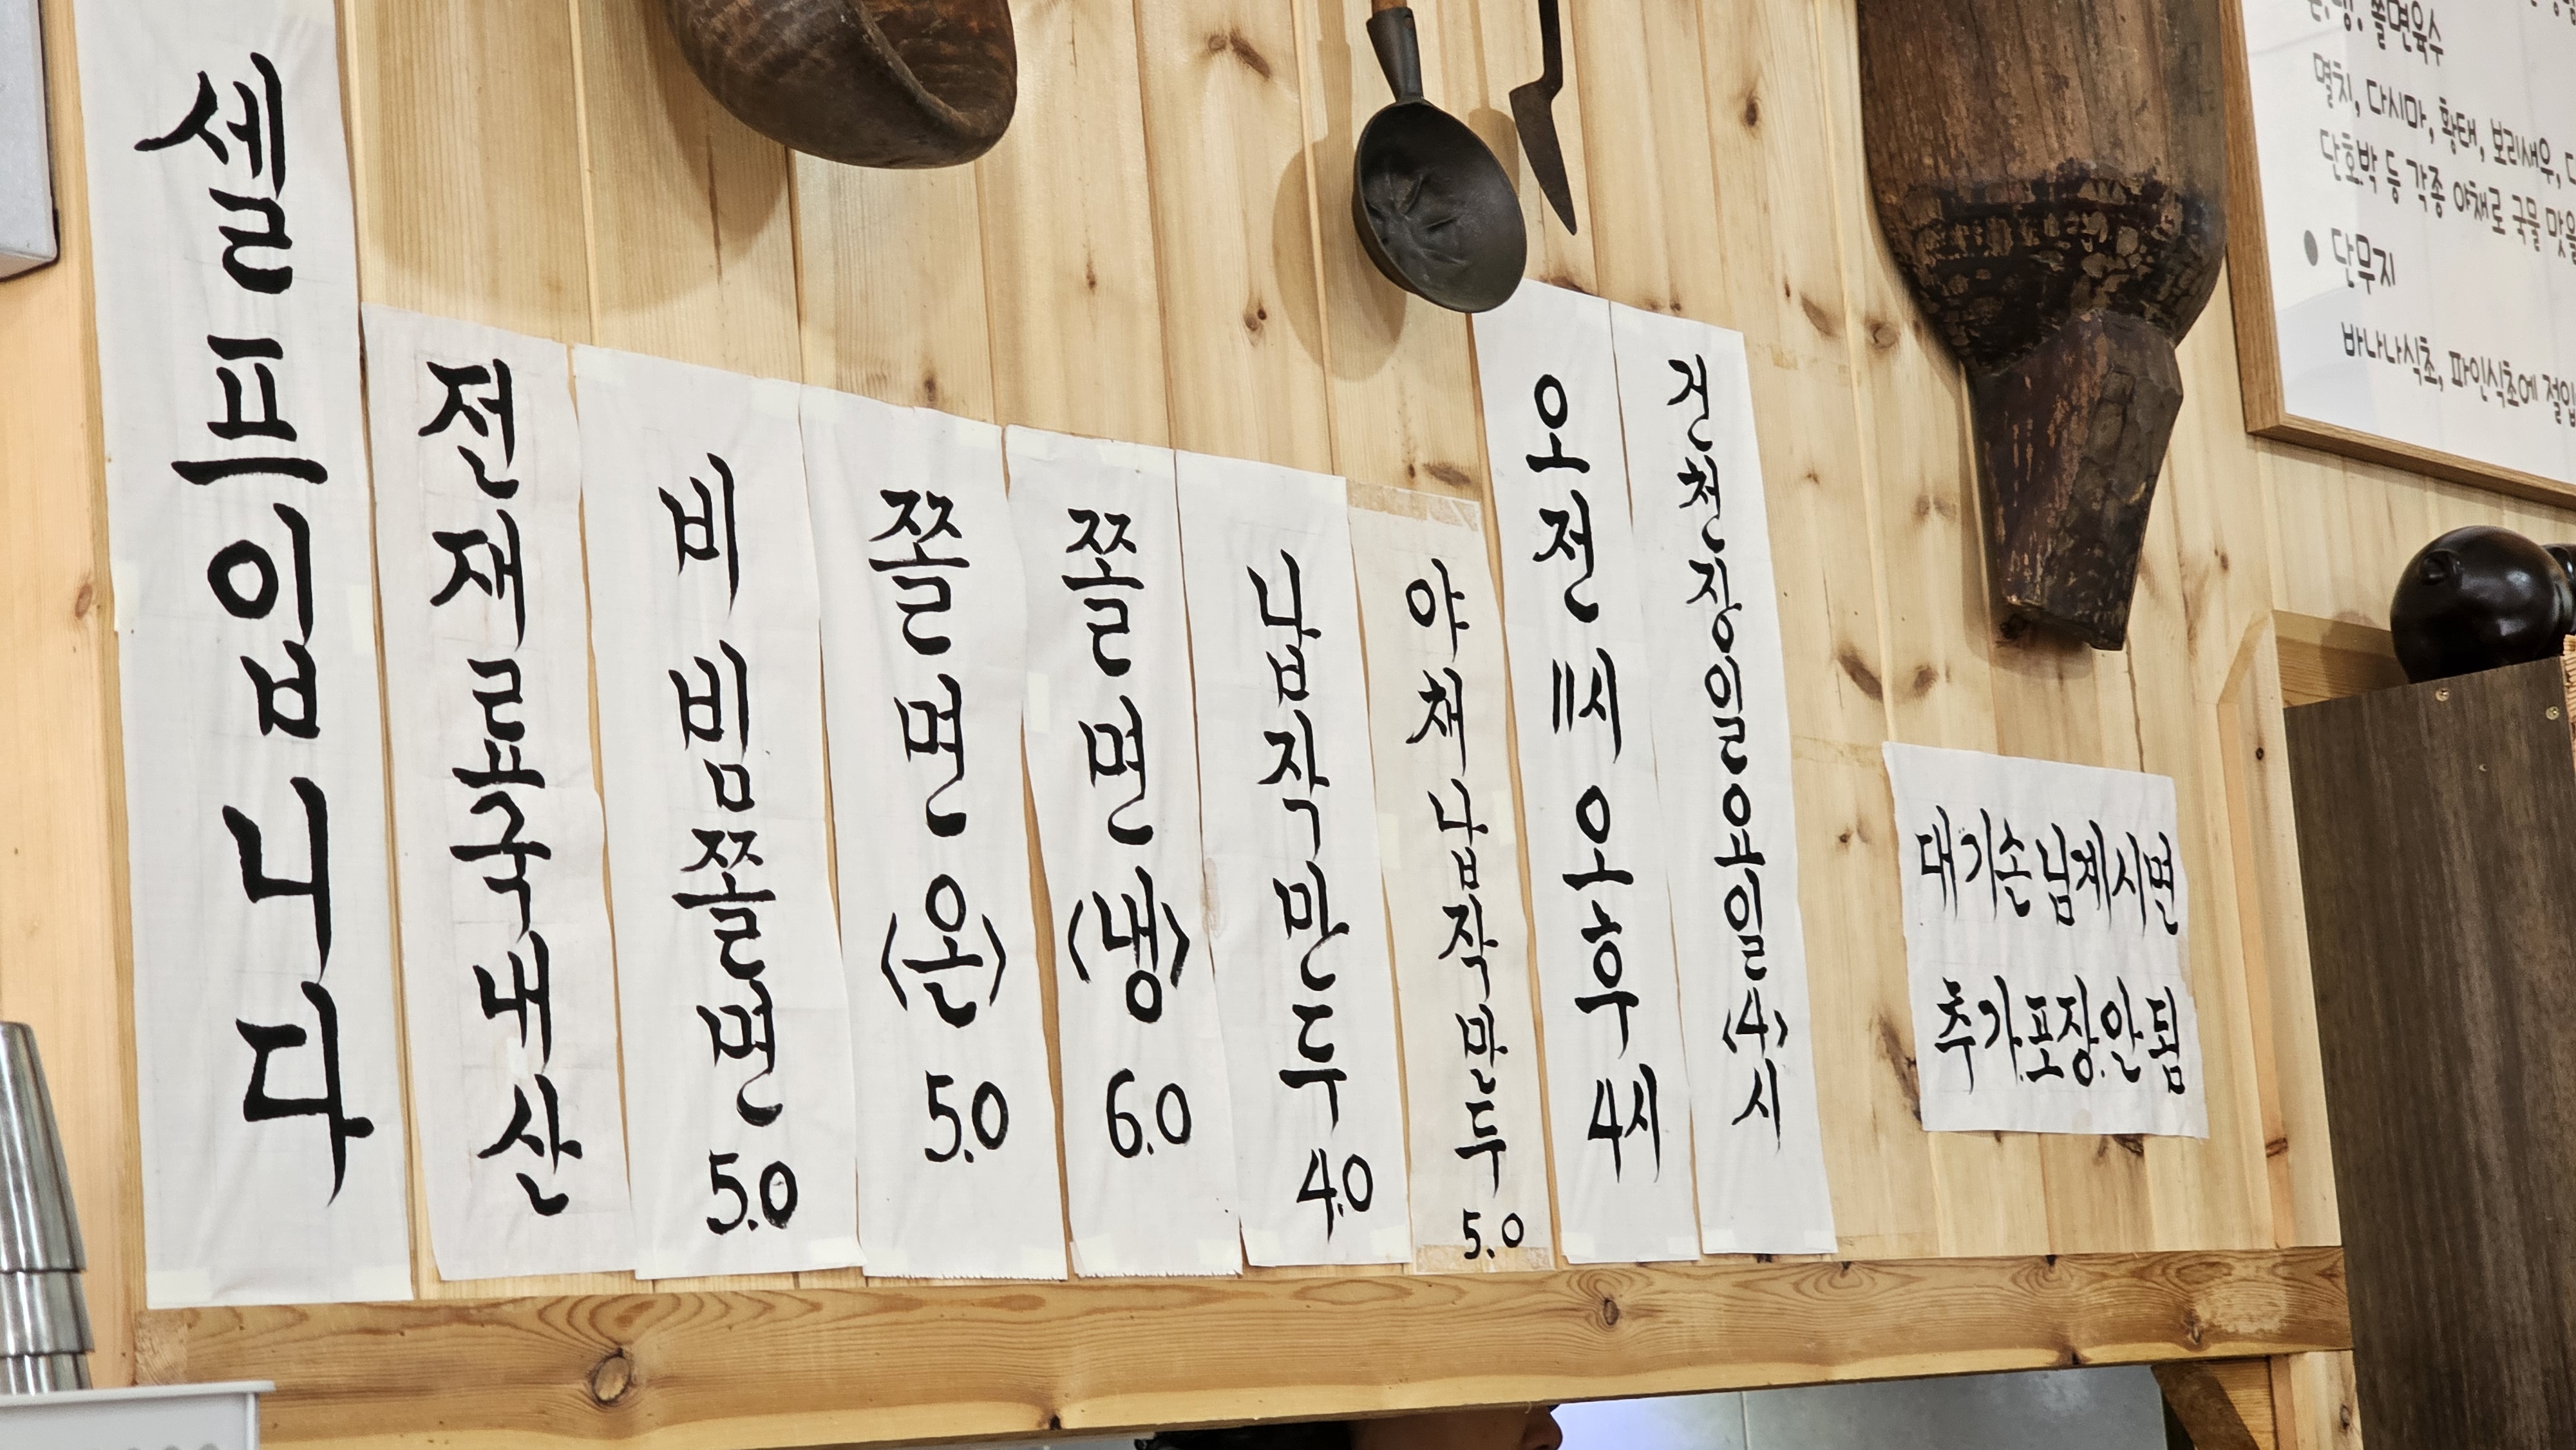 셀프입니다
전재료국내산
비빔쫄면 5.0
쫄면 <온> 5.0
쫄면 <냉> 6.0
납작만두 4.0
야채납작만두 5.0
오전 11시 오후 4시
진천장일요일<4>시
대기손님계시면
추가포장안됨
쫄면육수
멸치, 다시마, 황태, 보리새우,
단호박 등 각종 야채로 국물 맛을
● 단무지
바나나식초, 파인식초에 절임